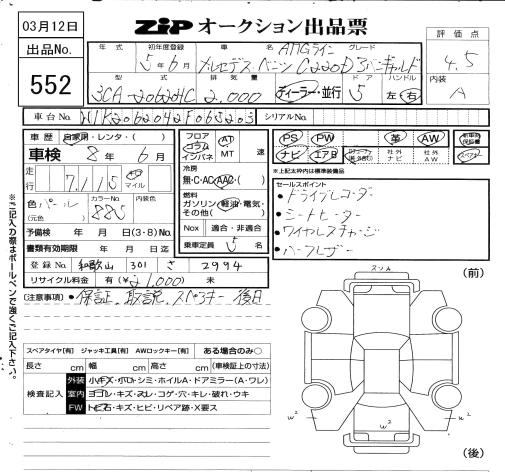 03月12日
ZIP オークション出品票
出品No.
552
評価点
4.5
内装
A
年式 初年度登録 車名 グレード
5年6月 メルセデス ベンツ C220D アバンギャルド
AMGライン
型式 排気量 ドア ハンドル
3CA-206204C 2,000 ディーラー・並行 5 左・右
車台No. W1K2062042F065203 シリアルNo.
車歴 自家用・レンタ・( )
車検 8年 6月
走行 7,115 km マイル
色 パール
(元色)
カラーNo.
885
内装色
予備検 年 月 日(3・8)No.
書類有効期限 年 月 日迄
登録No. 和歌山 301 さ 2994
リサイクル料金 有(¥21,000) 未
フロア コラム インパネ
AT
MT 速
冷房
無・C・AC・AAC・( )
燃料
ガソリン・軽油・電気・
その他( )
Nox 適合・非適合
乗車定員 5 名
PS PW 革 AW
ナビ エアB 社外ナビ 社外AW
※上記太枠内は標準装備品
セールスポイント
・ドライブレコーダー
・シートヒーター
・ワイヤレスチャージ
・ハーフレザー
[注意事項] ・保証、取説、スペアキー 後日
※ご記入の際はボールペンで強くご記入下さい。
スペアタイヤ[有] ジャッキ工具[有] AWロックキー[有] ある場合のみ○
長さ cm 幅 cm 高さ cm (車検証上の寸法)
検査記入
外装 小キズ・小凹・シミ・ホイルA・ドアミラー(A・ワレ)
室内 ヨゴレ・キズ・スレ・コゲ・穴・キレ・破れ・ウキ
FW トビ石・キズ・ヒビ・リペア跡・X要ス
スソA
(前)
W²
W²
(後)